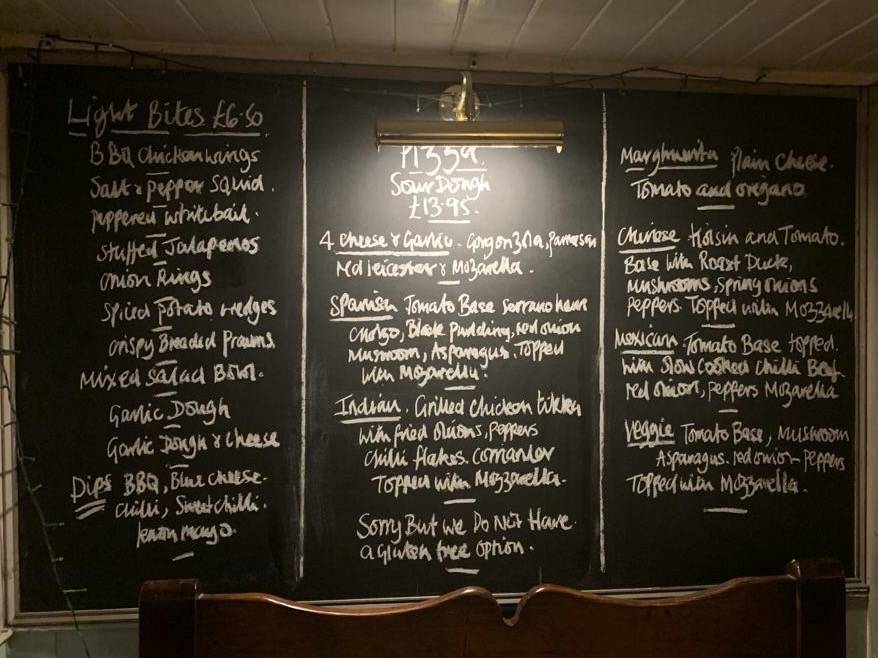 Light Bites £6.50
BBQ Chicken wings
Salt & pepper Squid.
peppered whitebait.
Stuffed Jalapenos
onion Rings
Spiced potato wedges
crispy Breaded Prawns
Mixed Salad Bowl.
Garlic Dough
Garlic Dough & Cheese
Dips BBQ, Blue cheese.
chilli, Sweet chilli.
mayo.
Sour Dough
£13.95.
4 cheese & Garlic. Gorgonzola, Parmesan
Red leicester & Mozarella.
Spanish Tomato Base Serrano ham
Chorizo, Black pudding, red onion
Mushroom, Asparagus. Topped
with Mozarella.
Indian. Grilled Chicken tikken
with fried onions, Peppers
Chilli flakes. Coriander
Topped with Mozzarella.
Sorry But we Do Not Have
a Gluten free option.
Margherita Plain Cheese.
Tomato and oregano
Chinese Hoisin and Tomato.
Base with Roast Duck,
Mushrooms, Spring onions
Peppers. Topped with Mozzarella
Mexican. Tomato Base topped.
with Slow Cooked Chilli Beef
red onion, peppers Mozarella
Veggie Tomato Base, Mushroom
Asparagus. red onion - Peppers
Topped with Mozzarella.